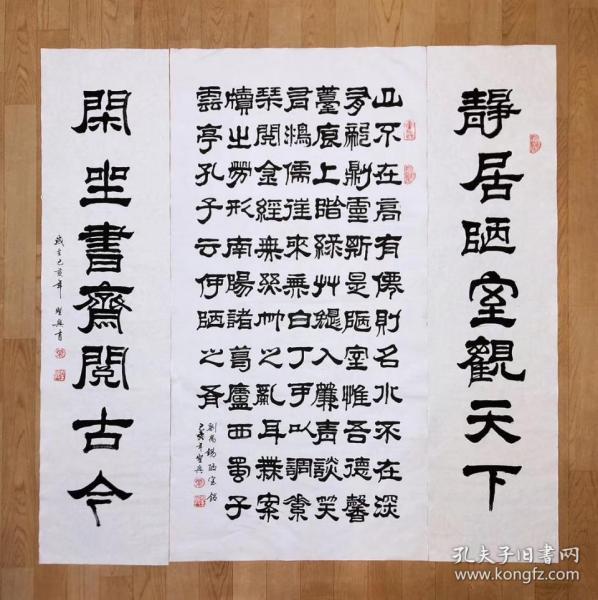 靜居陋室觀天下
山不在高有僊則名水不在深
有龍則靈斯是陋室惟吾德馨
苔痕上階綠艸色入簾青談笑
有鴻儒往來無白丁可以調素
琴閱金經無絲竹之亂耳無案
牘之勞形南陽諸葛廬西蜀子
雲亭孔子云何陋之有
劉禹錫陋室銘
己亥年聖興
閑坐書齋閱古今
歲在己亥年聖興書
孔夫子旧书网
www.kongfz.com